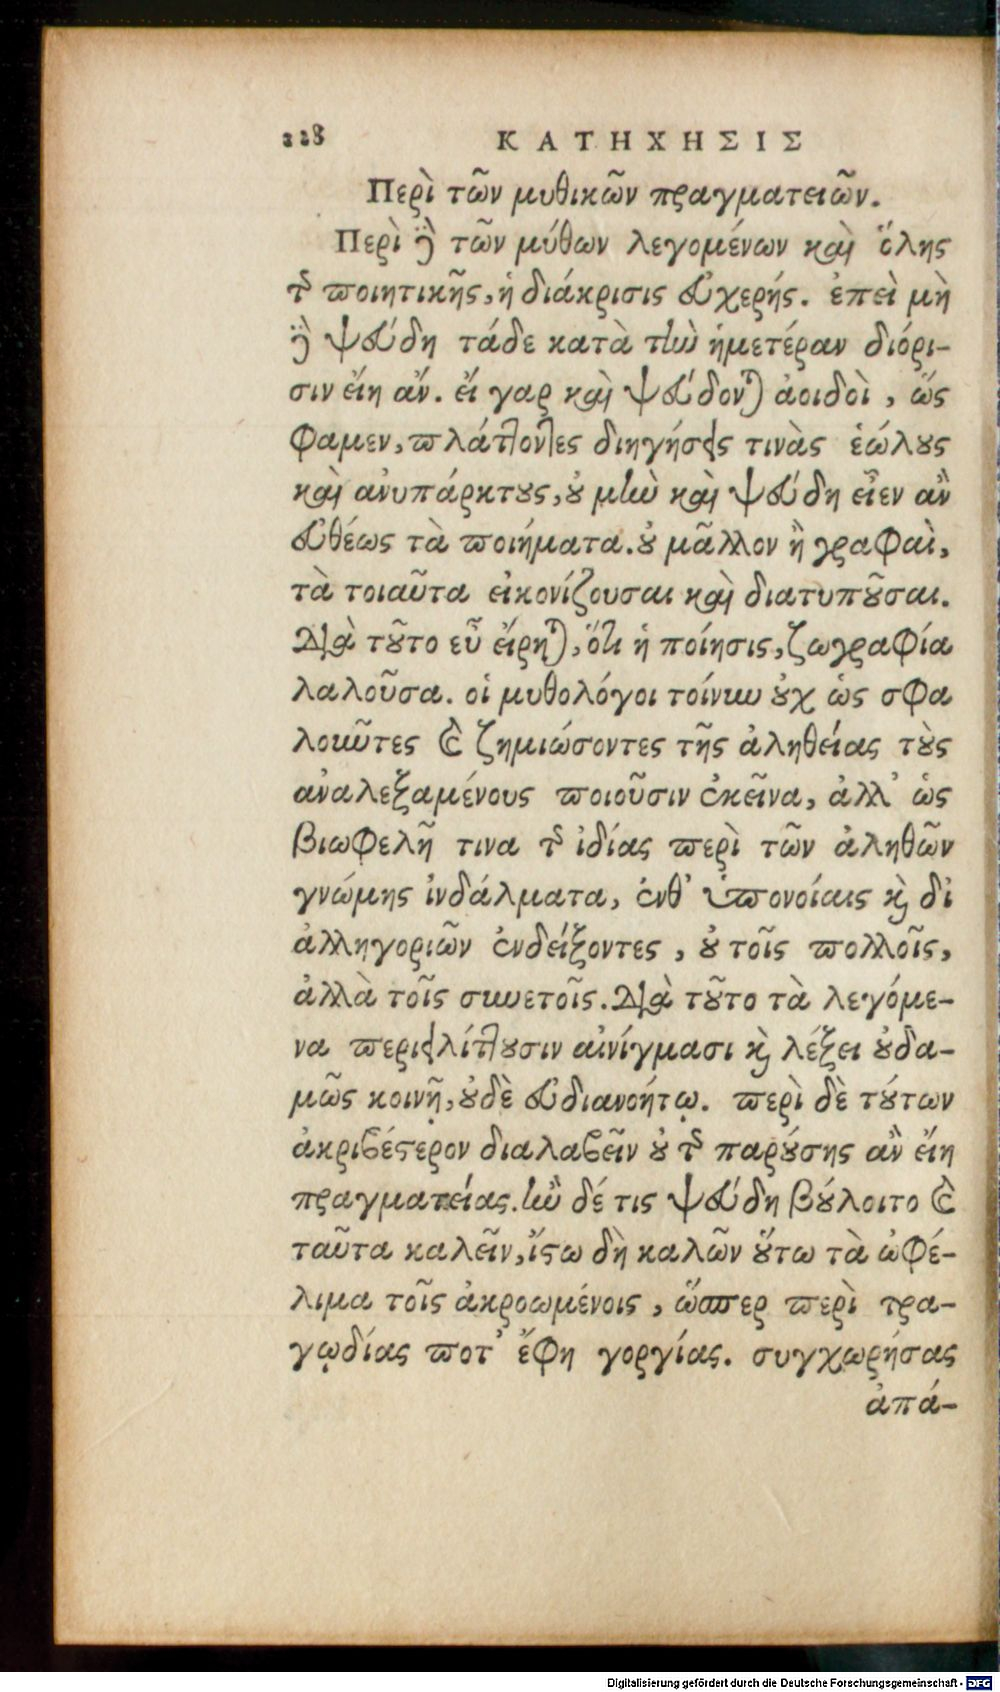 228 ΚΑΤΗΧΗΣΙΣ
Περὶ τῶν μυθικῶν πραγματειῶν.
Περὶ ϳὃ τῶν μύθων λεγομένων καὶ ὅλης
τῆς ποιητικῆς, ἡ διάκρισις εὐχερής. ἐπεὶ μὴ
δὲ ψεύδη τάδε κατὰ τὴν ἡμετέραν διόρι-
σιν εἴη ἄν. εἴ γαρ καὶ ψεύδονται ἀοιδοὶ, ὥς
φαμεν, πλάττοντες διηγήσεις τινὰς ἑώλους
καὶ ἀνυπάρκτους, οὐ μὴν καὶ ψεύδη εἶεν ἂν
εὐθέως τὰ ποιήματα. οὐ μᾶλλον ἢ γραφαὶ,
τὰ τοιαῦτα εἰκονίζουσαι καὶ διατυποῦσαι.
Διὰ τοῦτο εὖ εἴρηται, ὅτι ἡ ποίησις, ζωγραφία
λαλοῦσα. οἱ μυθολόγοι τοίνυν οὐχ ὡς σφα
λοιῶτες καὶ ζημιώσοντες τῆς ἀληθείας τοὺς
ἀναλεξαμένους ποιοῦσιν ἐκεῖνα, ἀλλ' ὡς
βιωφελῆ τινα τῆς ἰδίας περὶ τῶν ἀληθῶν
γνώμης ἰνδάλματα, ἐνθ' ὑπονοίαις καὶ δἰ
ἀλληγοριῶν ἐνδείξοντες, οὐ τοῖς πολλοῖς,
ἀλλὰ τοῖς συνετοῖς. Διὰ τοῦτο τὰ λεγόμε-
να περιειλίττουσιν αἰνίγμασι καὶ λέξει οὐδα-
μῶς κοινῇ, οὐδὲ εὐδιανοήτῳ. περὶ δὲ τούτων
ἀκριβέστερον διαλαβεῖν οὐ τῆς παρούσης ἂν εἴη
πραγματείας. ἢν δέ τις ψεύδη βούλοιτο καὶ
ταῦτα καλεῖν, ἴστω δὴ καλῶν οὕτω τὰ ὠφέ-
λιμα τοῖς ἀκροωμένοις, ὥσπερ περὶ τρα-
γῳδίας ποτ' ἔφη γοργίας. συγχωρήσας
ἀπά-
Digitalisierung gefördert durch die Deutsche Forschungsgemeinschaft - DFG